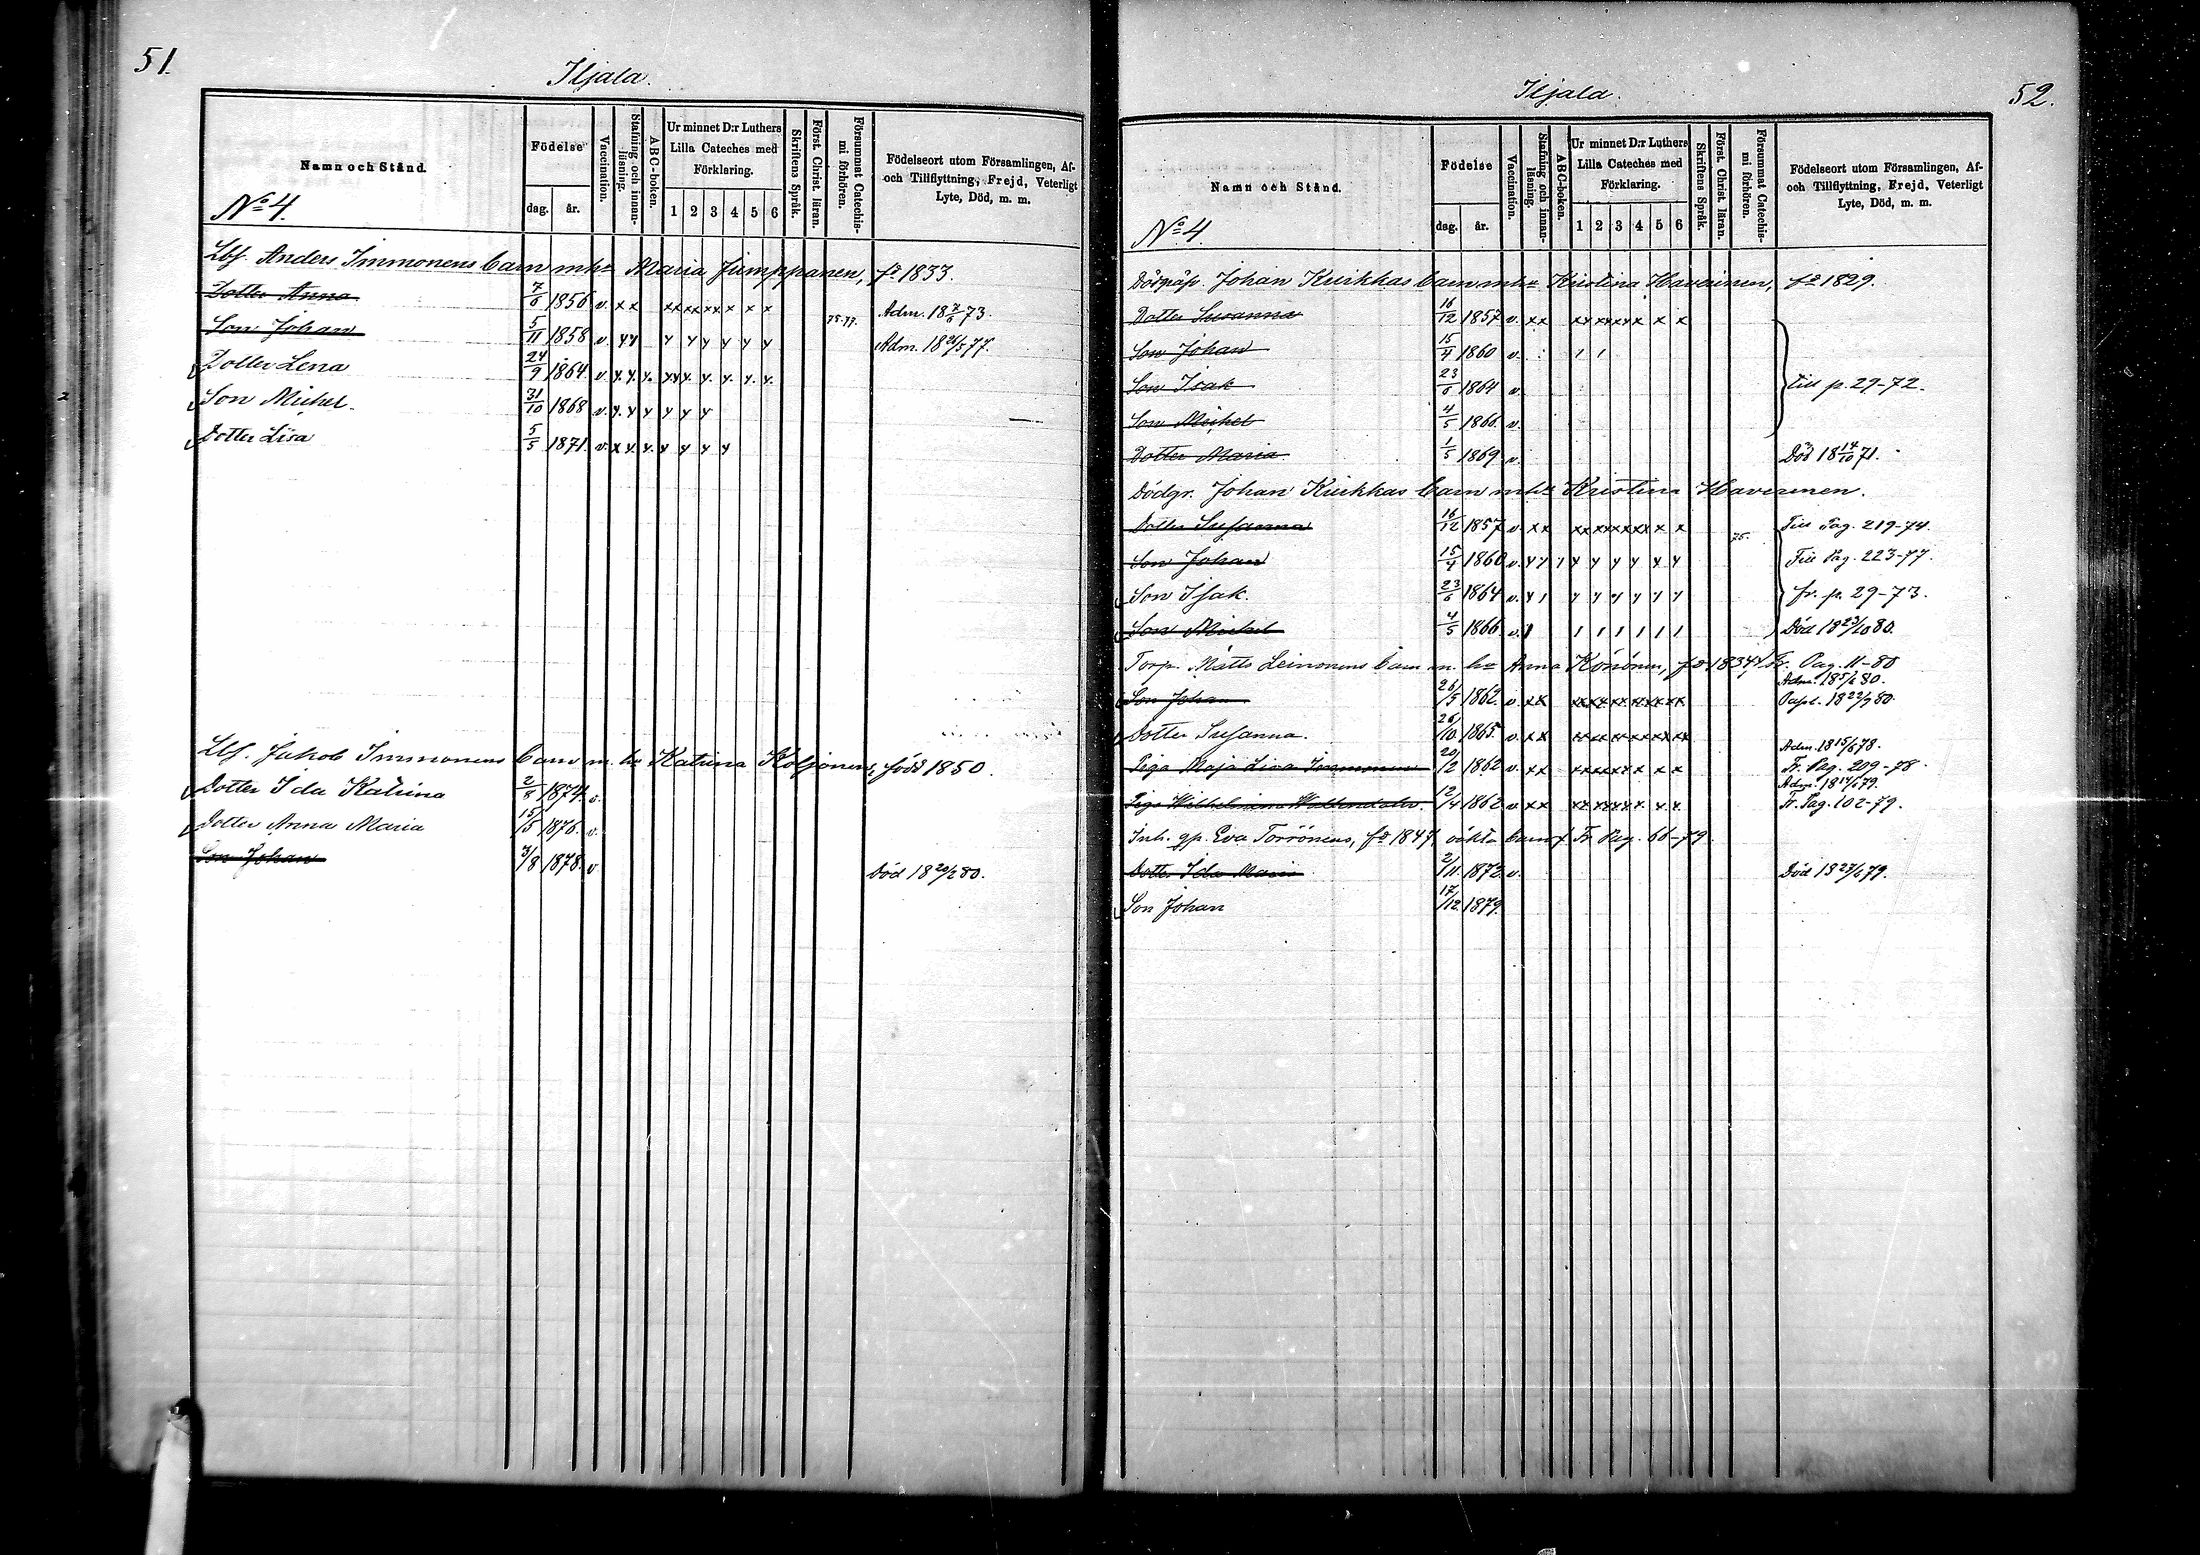 51.
Iljala.
Namn och Stånd.
Födelse
dag. år.
Vaccination.
Stafning och innanläsning.
ABC-boken.
Ur minnet D:r Luthers
Lilla Cateches med
Förklaring.
1 2 3 4 5 6
Skriftens Språk.
Först. Christ. läran.
Försummat Catechismi förhören.
Födelseort utom Församlingen, Af-
och Tillflyttning, Frejd, Veterligt
Lyte, Död, m. m.
No 4.
Lbf. Anders Immonens barn m. hu Maria Jumppanen, f. 1833.
Dotter Anna 7/6 1856 v. x x xx xx xx x x x Adm. 18 7/6 73.
Son Johan 5/11 1858 v. y y y y y y y y 75.77. Adm. 18 21/5 77.
Dotter Lena 24/9 1864 v. y. y. y. yy y. y. y. y. y.
Son Michel. 31/10 1868 v. y. y y y y y
Dotter Lisa 5/5 1871. v. x y. y. y y y y
Lbf. Jakob Immonens barn m. hu Katrina Koljonen, född 1850.
Dotter Ida Katrina 2/8 1874. v.
Dotter Anna Maria 15/5 1876. v.
Son Johan 3/8 1878. v Död 18 20/2 80.
52.
Iljala.
Namn och Stånd.
Födelse
dag. år.
Vaccination.
Stafning och innanläsning.
ABC-boken.
Ur minnet D:r Luthers
Lilla Cateches med
Förklaring.
1 2 3 4 5 6
Skriftens Språk.
Först. Christ. läran.
Försummat Catechismi förhören.
Födelseort utom Församlingen, Af-
och Tillflyttning, Frejd, Veterligt
Lyte, Död, m. m.
No 4.
Johan Kuikkas barn m hu Kristina Haverinen, f. 1829.
Dotter Susanna 16/12 1857 v. x x xx xx xx x x x
Son Johan 15/4 1860 v. 1 1
Son Isak 23/6 1864 v. till p. 29-72.
Son Michel 4/5 1866. v.
Dotter Maria 1/5 1869 v. Död 18 14/10 71.
Dödgr. Johan Kuikkas barn m hu Kristina Haverinen.
Dotter Susanna 16/12 1857 v. x x xx xx xx xx x x 75. Till Pag. 219-74.
Son Johan 15/4 1860 v. y y 1 y y y y y y Till Pag. 223-77.
Son Isak. 23/6 1864 v. y 1 y y y y y y fr. p. 29-73.
Son Michel 4/5 1866 v. 1 1 1 1 1 1 Död 18 23/10 80.
Torp. Matts Leinonens barn m. hu Anna Könönen, f. 1834 Fr. Pag. 11-80
Son Johan 26/5 1862. v xx xx xx xx xx xx xx Adm. 18 5/6 80.
18 22/9 80
Dotter Susanna. 26/10 1865. v. xx xx xx xx xx xx xx
Piga Maja Lisa Immonen 20/2 1862 v. x x xx xx xx x x x Adm. 18 15/6 78.
Fr. Pag. 209-78.
Piga Wilhelmina 12/4 1862 v. x x xx xx xx x x x Adm. 18 14/6 79.
Fr. Pag. 102-79.
Inh. gp. Eva Torrönens, f. 1847, oäkta barn Fr. Pag. 66-79.
Dotter Ida Maria 2/11. 1872 v. Död 18 27/6 79.
Son Johan 17/12. 1879.